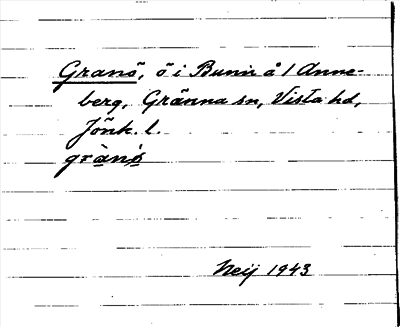 Granö, ö i Bunn å / Anne-
berg, Gränna sn, Vista hd,
Jönk. l.
Neij 1943